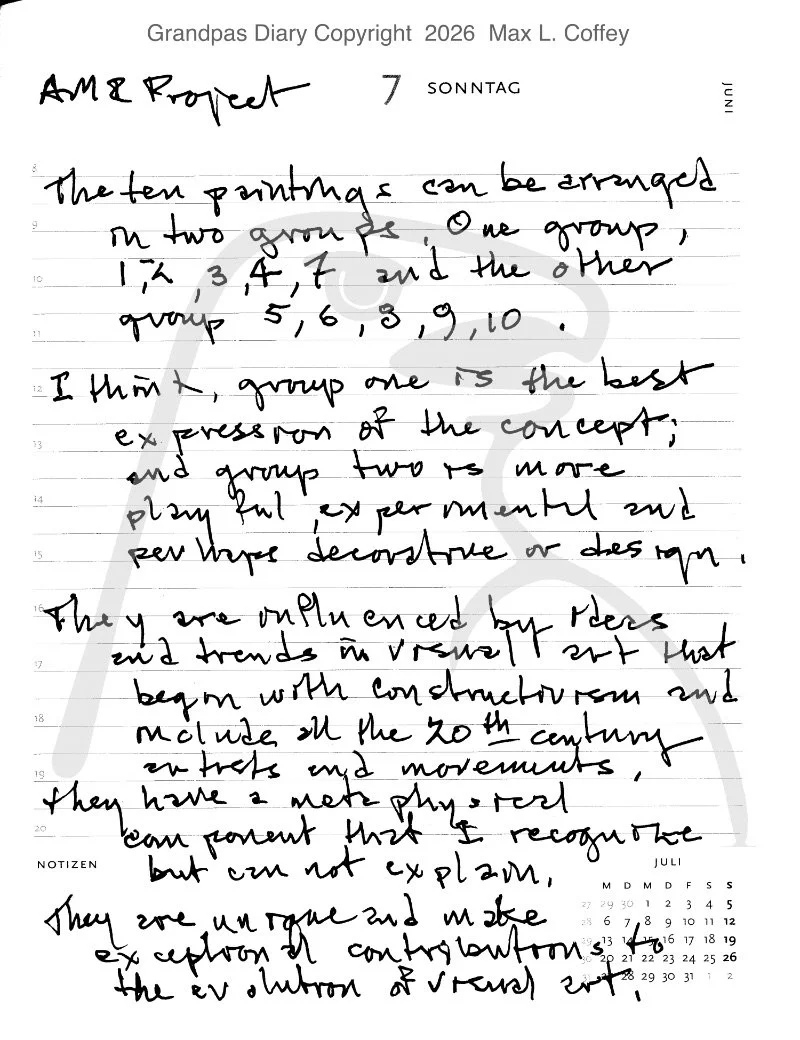 Grandpas Diary Copyright 2026 Max L. Coffey
AM& Project 7 SONNTAG JUNI
8
The ten paintings can be arranged
9
in two groups. One group,
10
1,2,3,4,7 and the other
11
group 5,6,8,9,10.
12
I think, group one is the best
13
expression of the concept;
and group two is more
14
playful, experimental and
15
perhaps decorative or design.
16
They are influenced by ideas
17
and trends in visual art that
begin with constructivism and
18
include all the 20th century
19
artists and movements,
they have a metaphysical
20
component that I recognize
but can not explain.
NOTIZEN
They are unique and make
exceptional contributions to
the evolution of visual art.
JULI
M D M D F S S
27 29 30 1 2 3 4 5
28 6 7 8 9 10 11 12
29 13 14 15 16 17 18 19
30 20 21 22 23 24 25 26
31 28 29 30 31 1 2